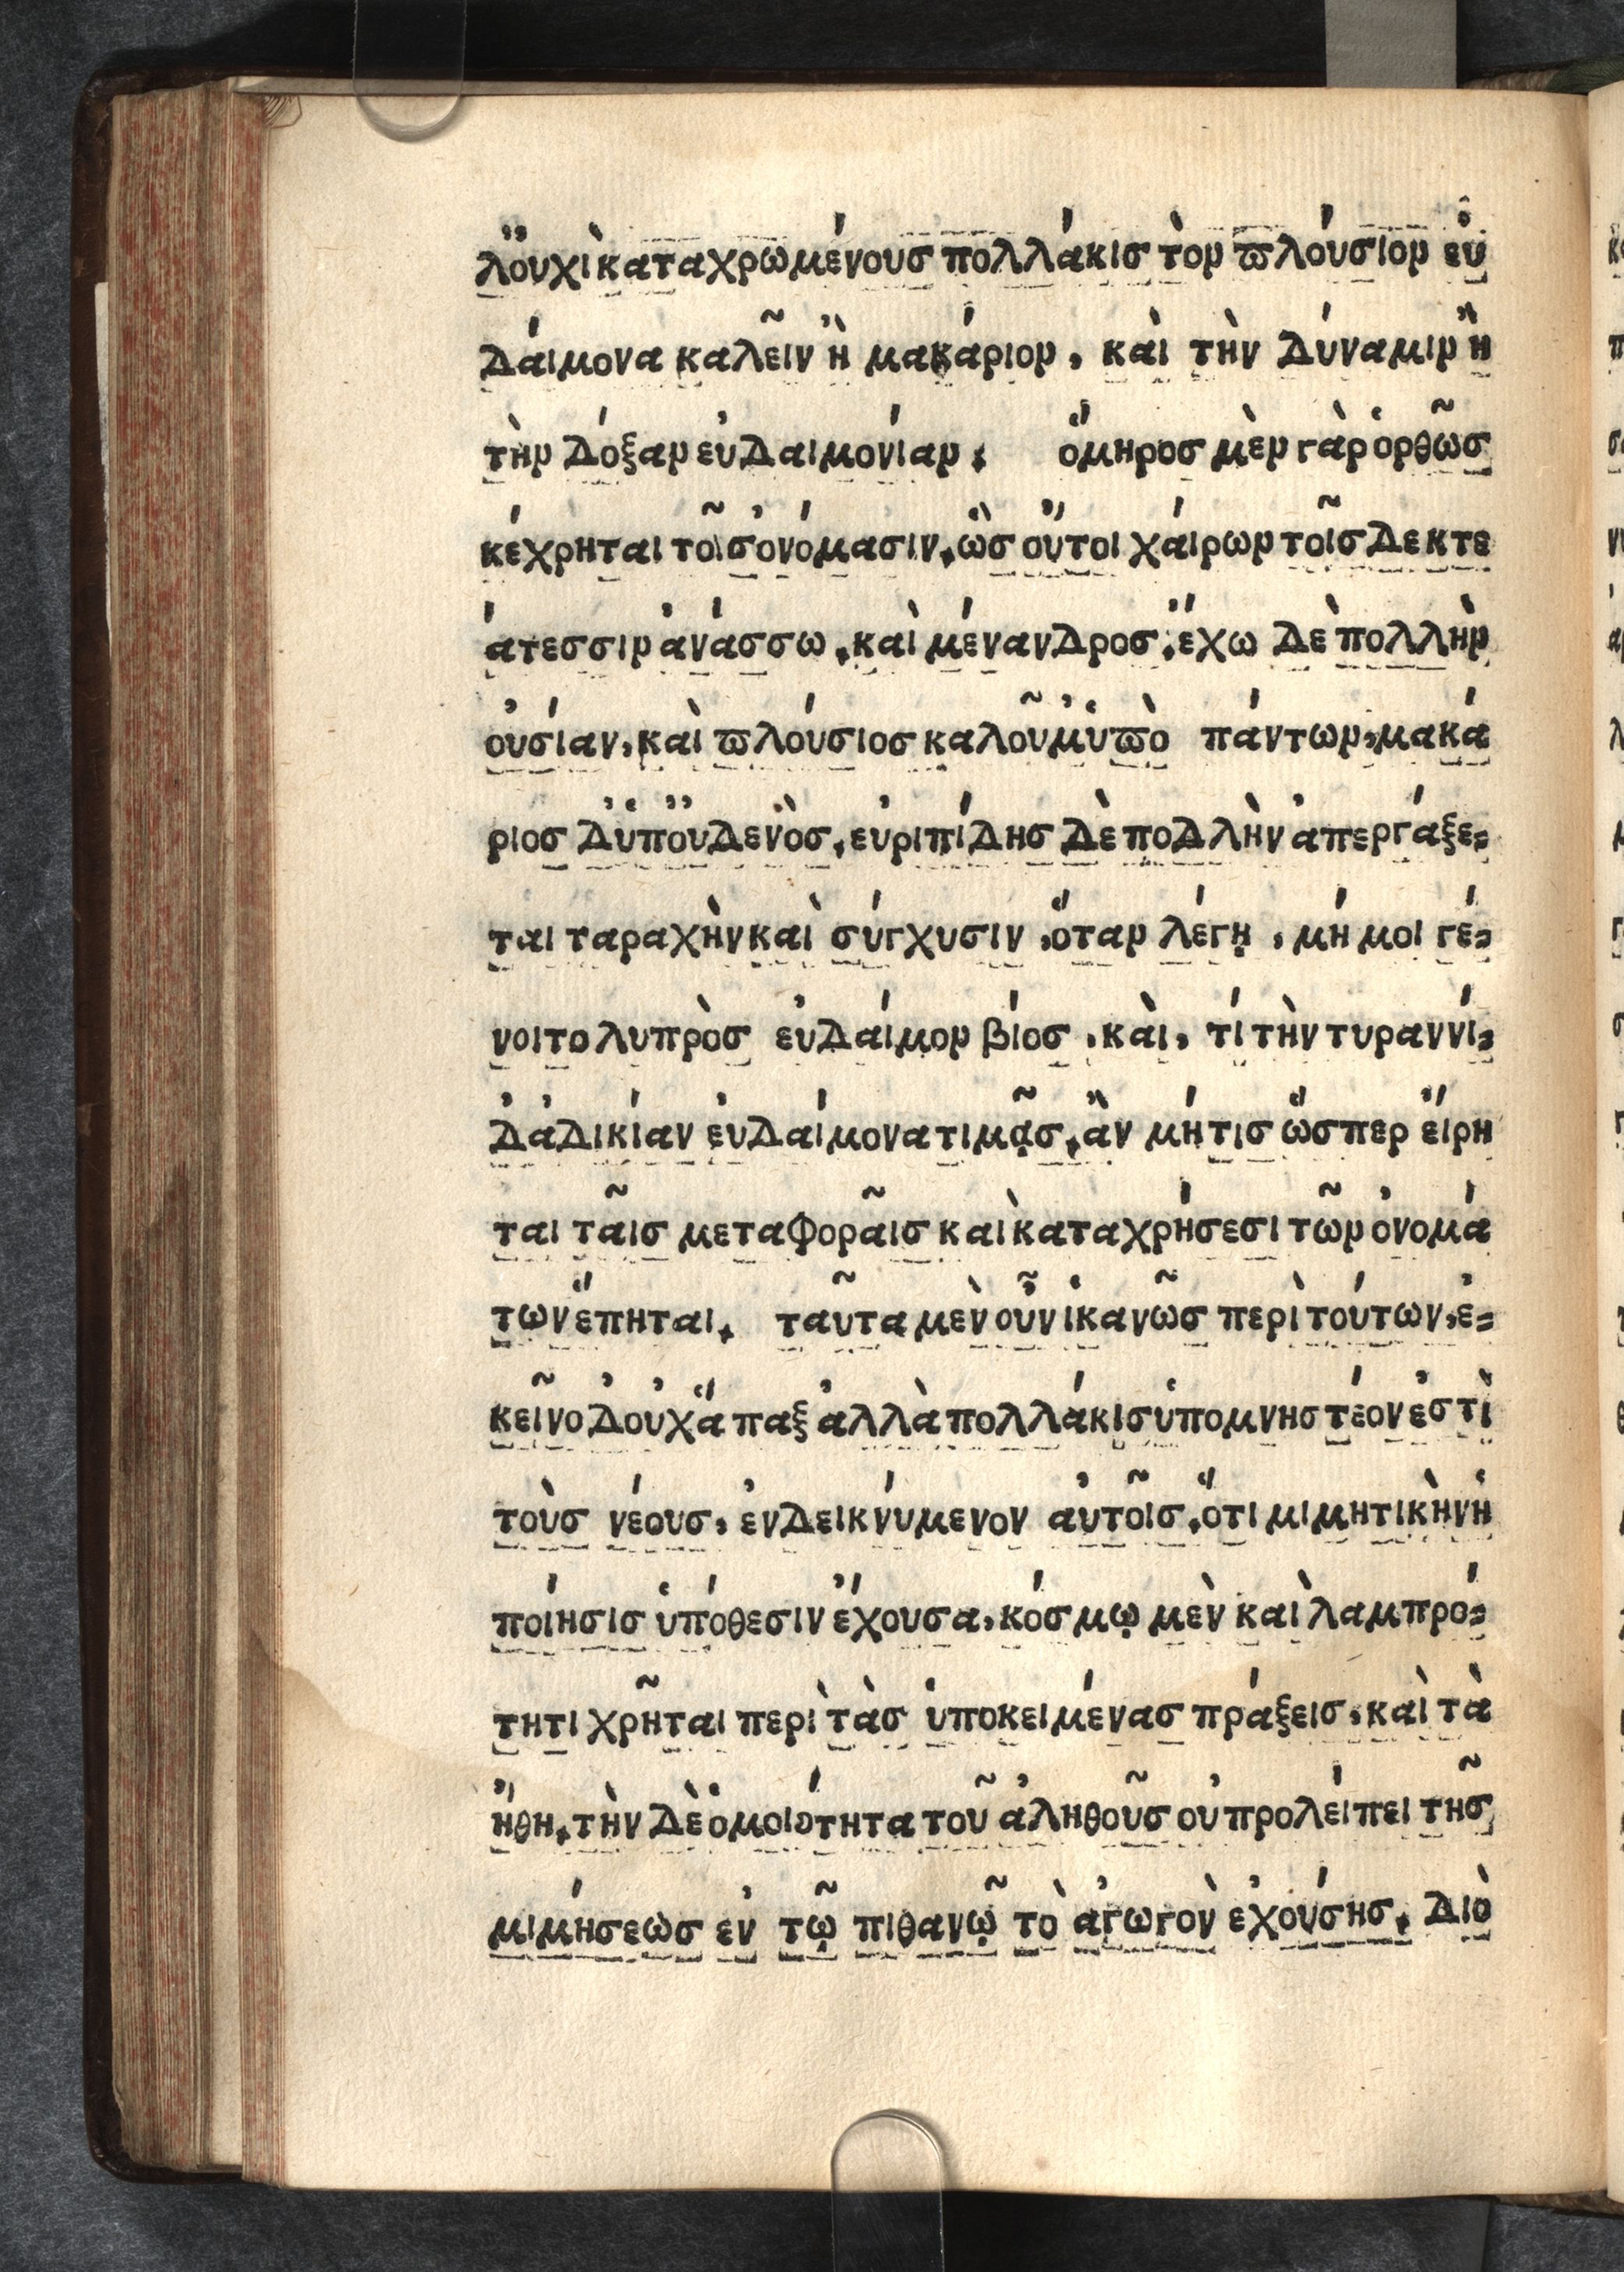 λὄυχὶ καταχρωμένουσ πολλάκισ τὸν πλόυσιον ἐυ
δάιμονα καλεῖν ἢ μακάριον, κὰι τὴν δύναμιν ἢ
τὴν δόξαν ἐυδαιμονίαν. ὅμηροσ μὲν γὰρ ὀρθῶσ
κέχρηται τοῖσ ὀνόμασιν. ὣσ όὔτοι χάιρων τοῖσδε κτε
άτεσσιν ἀνάσσω. κὰι μένανδροσ. ἔχω δε πολλὴν
ὀυσίαν, κὰι πλόυσιοσ καλοῦμ' ὑπὸ πάντων, μακά
ριοσ δ' ὑπ' ουδενὸσ. ἐυριπίδησ δὲ ποδλὴν ἀπεργάξε=
ται ταραχὴν κὰι σύγχυσιν, ὅταν λέγῃ, μή μοι γέ=
νοιτο λυπρὸσ ἐυδάιμον βίοσ, κὰι, τί τὴν τυραννί=
δ' ἀδικίαν ἐυδάιμονα τιμᾷσ. ἂν μή τισ ὥσπερ ἔιρη
ται τᾶισ μεταφορᾶισ κὰι καταχρήσεσι τῶν ὀνομά
των ἕπηται. τᾶυτα μὲν ὀῦν ἱκανῶσ περὶ τόυτων, ἐ=
κεῖνο δ' ὀυχ ἅπαξ ἀλλὰ πολλάκισ ὑπομνηστέον ἐστὶ
τὸυσ νέουσ, ἐνδεικνύμενον ἀυτοῖσ. ὅτι μιμητικὴν ἡ
πόιησισ ὑπόθεσιν ἔχουσα, κόσμῳ μὲν κὰι λαμπρό=
τητι χρῆται περὶ τὰσ ὑποκειμένασ πράξεισ, κὰι τὰ
ἤθη. τὴν δὲ ὁμοιότητα τοῦ ἀληθοῦσ ὀυ προλέιπει τῆσ
μιμήσεὼσ ἐν τῷ πιθανῷ τὸ ἀγωγὸν ἐχόυσησ. διὸ